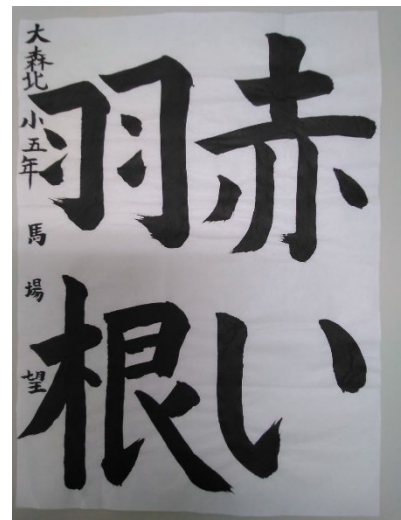 赤い
羽根
大森北小五年 馬場望